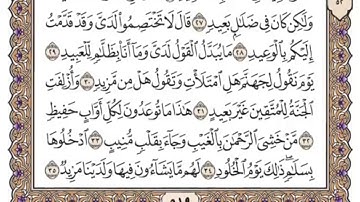 وَلَٰكِن كَانَ فِى ضَلَٰلٍۭ بَعِيدٍ ٢٧ قَالَ لَا تَخْتَصِمُوا۟ لَدَىَّ وَقَدْ قَدَّمْتُ
إِلَيْكُم بِٱلْوَعِيدِ ٢٨ مَا يُبَدَّلُ ٱلْقَوْلُ لَدَىَّ وَمَآ أَنَا۠ بِظَلَّٰمٍ لِّلْعَبِيدِ ٢٩
يَوْمَ نَقُولُ لِجَهَنَّمَ هَلِ ٱمْتَلَأْتِ وَتَقُولُ هَلْ مِن مَّزِيدٍ ٣٠ وَأُزْلِفَتِ
ٱلْجَنَّةُ لِلْمُتَّقِينَ غَيْرَ بَعِيدٍ ٣١ هَٰذَا مَا تُوعَدُونَ لِكُلِّ أَوَّابٍ حَفِيظٍ
٣٢ مَّنْ خَشِىَ ٱلرَّحْمَٰنَ بِٱلْغَيْبِ وَجَآءَ بِقَلْبٍ مُّنِيبٍ ٣٣ ٱدْخُلُوهَا
بِسَلَٰمٍ ۖ ذَٰلِكَ يَوْمُ ٱلْخُلُودِ ٣٤ لَهُم مَّا يَشَآءُونَ فِيهَا وَلَدَيْنَا مَزِيدٌ ٣٥
٥١٩